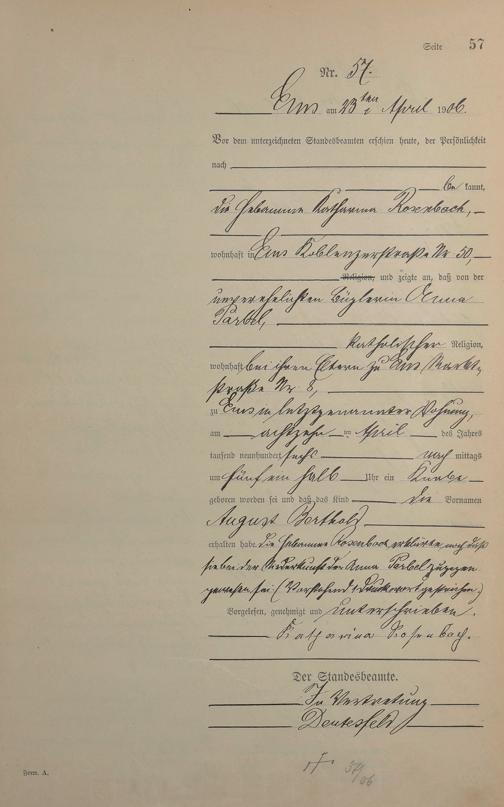 Seite 57
Nr. 57.
Ems am 23ten April 1906.
Vor dem unterzeichneten Standesbeamten erschien heute, der Persönlichkeit
nach
be kannt,
die Hebamme Katharina Rosenbach,
wohnhaft in Ems Koblenzerstraße Nr 50,
Religion, und zeigte an, daß von der
unverehelichten Büglerin Anna
Parbel,
katholischer Religion,
wohnhaft bei ihren Eltern zu Ems Markt-
straße Nr 8,
zu Ems in letztgenannter Wohnung,
am achtzehn ten April des Jahres
tausend neunhundert sechs nach mittags
um fünf ein halb Uhr ein Knabe
geboren worden sei und daß das Kind die Vornamen
August Berthold
erhalten habe. Die Hebamme Rosenbach erklärte, noch daß
sie bei der Niederkunft der Anna Parbel zugegen
gewesen sei (Vorstehend 1 Druckwort gestrichen)
Vorgelesen, genehmigt und unterschrieben.
Katharina Rosenbach.
Der Standesbeamte.
In Vertretung
Deutesfeld
57/06
Form. A.